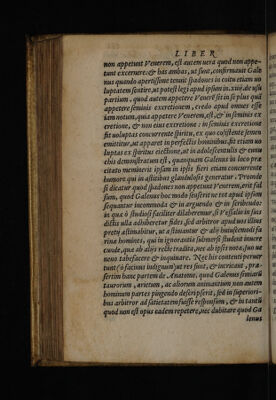 LIBER
non appetunt Venerem, est autem uera quod non appe-
tunt excernere: & his ambas, ut sunt, confirmauit Gale
nus quando apertissime tenuit spadones in coitu etiam uo
luptatem sentire, ut potest legi apud ipsum in. xiiij. de usu
partium, quod autem appetere Venerē sit in se plus quā
appetere seminis excretionem, credo apud omnes esse
iam notum, quia appetere Venerem, est, & in seminis ex
cretione, & non eius excretione: in seminis excretione
fit uoluptas concurrente spiritu, ex quo consistente semen
emittitur, ut apparet in perfectis hominibus, fit etiam uo
luptas ex spiritus eiectione, ut in adolescentulis & eunu
chis demonstratum est, quanquam Galenus in loco præ
citato meminerit ipsam in ipsis fieri etiam concurrente
humore qui in astitibus glandulosis generatur. Proinde
si dicatur quod spadones non appetunt Venerem, erit fal
sum, quod Galenus hoc modo senserit ne tot apud ipsum
sequantur incommoda & in arguendo & in scribendo:
in qua ò studiosi faciliter dilaberemur, si Vessalij in suis
dictis ulla adhiberetur fides, sed arbitror apud uos illius
pretij æstimabitur, ut æstimantur & alij huiuscemodi fa
rinæ homines, qui in ignorantia submersi student inuere
cunde, quæ ab alijs recte tradita, nec ab ipsis nota, suo ue
neno tabefacere & inquinare. Nec his contenti peruer
tunt (ò facinus indignum) ut res sunt, & intricant, præ-
sertim hanc partem de Anatome, quod Galenus simiarū
taurorum, arietum, ac aliorum animantium non autem
hominum partes pingendo descripserit, sed in superiori-
bus arbitror ad satietatem fuisse responsum, & in tantū
quod non est opus eadem repetere, nec dubitare quod Ga
lenus